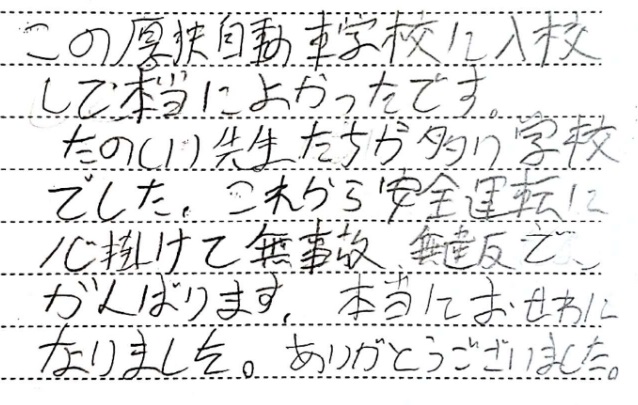 この厚狭自動車学校に入校
して本当によかったです。
たのしい先生たちが多い学校
でした。これから安全運転に
心掛けて無事故、無違反で
がんばります。本当におせわに
なりました。ありがとうございました。